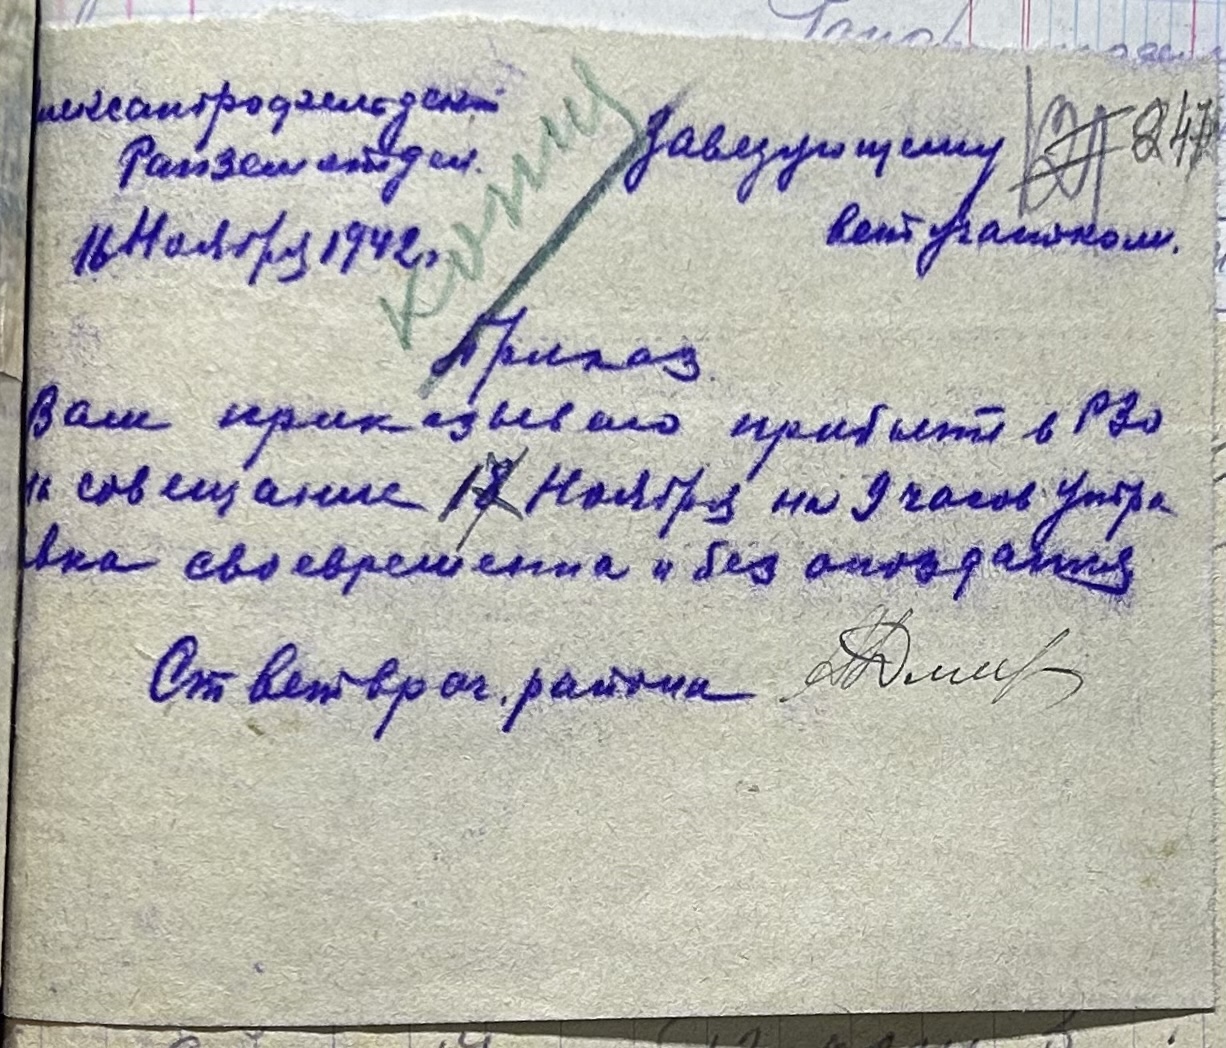 Райземотдел.
16 Ноября 1942 г.
Заведующему
ветучастком.
247
Приказ
Вам приказываю прибыть в РЗо
на совещание Ноября на 9 часов утра
явка своевременна и без опоздания
Ст ветврач. района